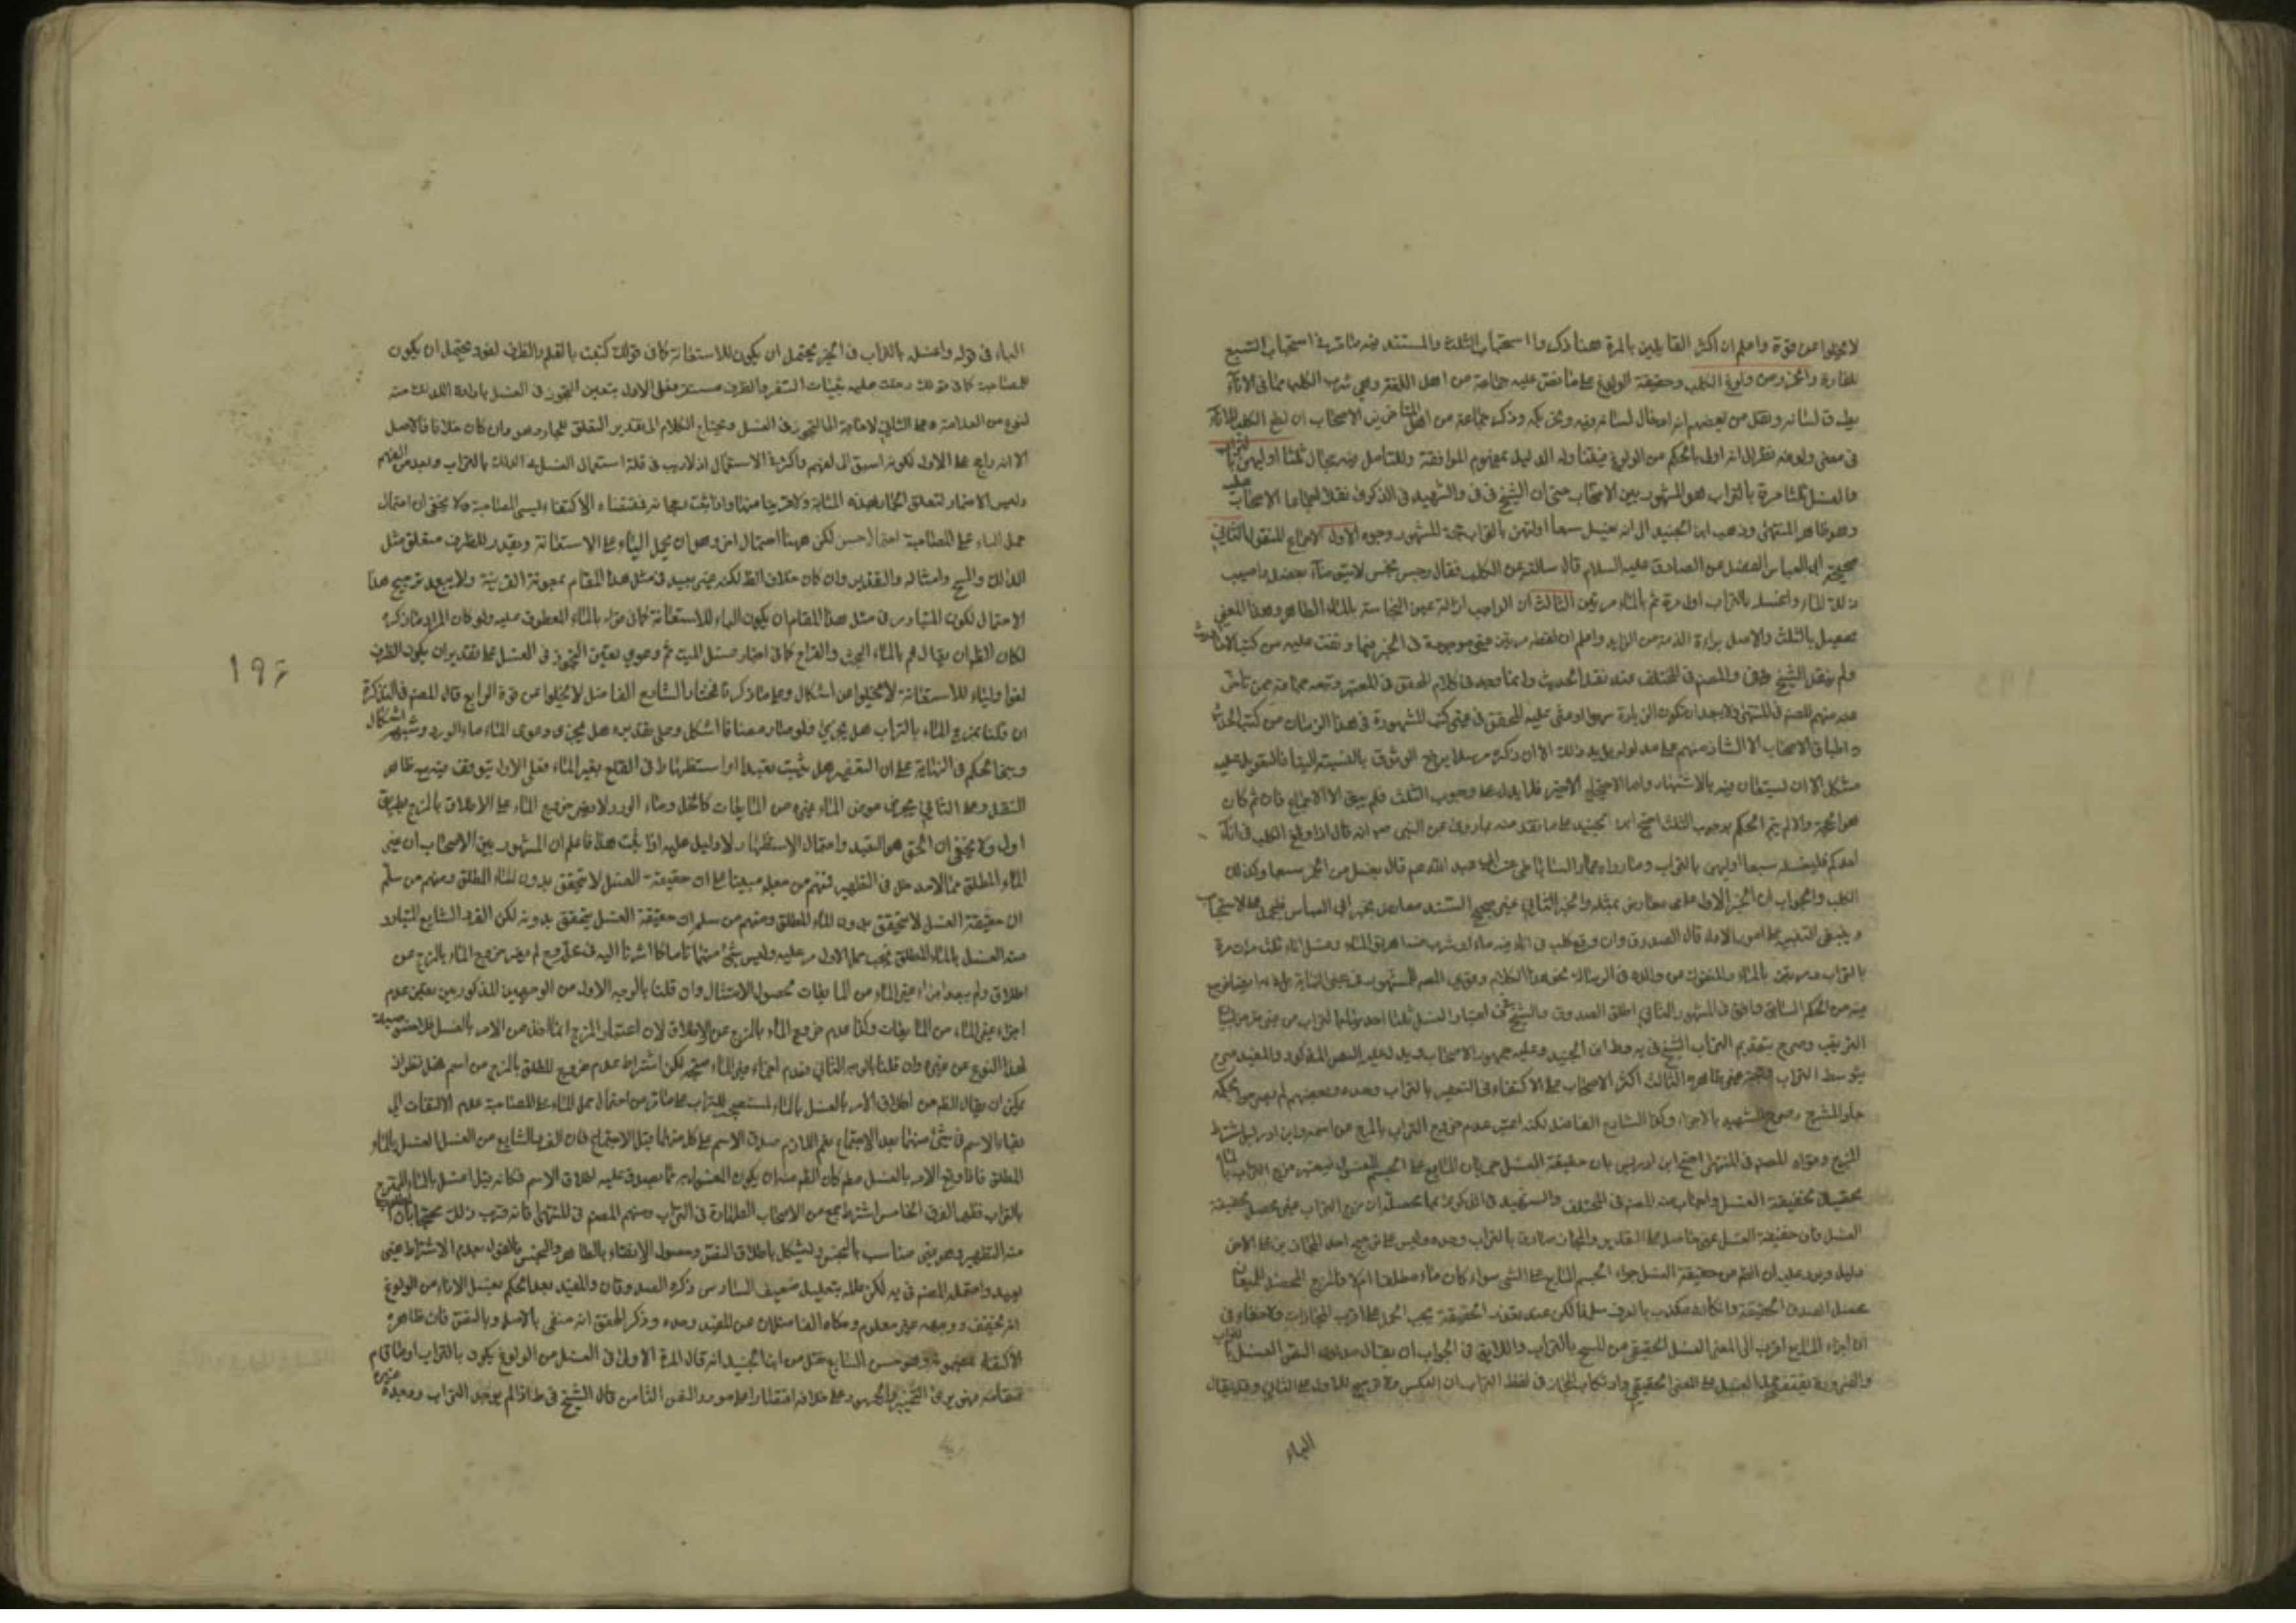 لا يخلوا عن قوة واعلم ان اكثر القايلين بالمرة هنا ذكروا استحباب الثلث والمستند فيه ما مر في استحباب السبع
للفارة والخمر ومن ولوغ الكلب وحقيقة الولوغ على ما نص عليه جماعة من اهل اللغة وهي شرب الكلب مما في الاناء
بطرف لسانه ونقل من بعضهم انه ادخال لسانه فيه وتحريكه وذكر جماعة من المتاخرين الاصحاب ان لطع الكلب الاناء
في معنى ولوغه نظرا الى انه اولى بالحكم من الولوغ فيتناوله الدليل بمفهوم الموافقة وللتامل فيه مجال ثلثا اوليهن بالتراب
والغسل ثلثا مرة بالتراب هو المشهور بين الاصحاب حتى ان الشيخ في ف والشهيد في الذكرى نقلا اجماع الاصحاب عليه
وهو ظاهر المنتهى وذهب ابن الجنيد الى انه يغسل سبعا اوليهن بالتراب حجة المشهور وجوه الاول الاجماع المنقول الثاني
صحيحة ابي العباس الفضل عن الصادق عليه السلام قال سالته عن الكلب فقال رجس نجس لا يتوضأ بفضله واصبب
ذلك الماء واغسله بالتراب اول مرة ثم بالماء مرتين الثالث ان الواجب ازالة عين النجاسة بالماء الطاهر وهذا المعنى
يحصل بالثلث والاصل براءة الذمة من الزايد واعلم ان لفظ مرتين غير موجودة في الخبر فيما وقفت عليه من كتب الاحاديث
ولم ينقل الشيخ في ف والمصنف في المختلف عند نقل الحديث وانما وجد في كلام المحقق في المعتبر وتبعه جماعة ممن تاخر
عنه منهم المصنف في المنتهى ولا يبعد ان تكون الزيادة سهوا
واطباق الاصحاب الا الشاذ منهم على مدلوله يؤيد ذلك الا ان ذكره مرسلا يرفع الوثوق بالنسبة الينا فالتعويل عليه
مشكل الا ان يستعان فيه بالاشتهار واما الاحتجاج الاخير فلا يدل على وجوب الثلث فلم يبق الا الاجماع فان تم كان
هو الحجة والا لم يتم الحكم بوجوب الثلث احتج ابن الجنيد على ما نقد عنه بما روي عن النبي ص انه قال اذا ولغ الكلب في اناء
احدكم فليغسله سبعا اوليهن بالتراب وما رواه عمار الساباطي عن ابي عبد الله عم قال يغسل من الخمر سبعا وكذلك
الكلب والجواب ان الخبر الاول عامى معارض بمثله والخبر الثاني غير صحيح السند معارض بخبر ابي العباس فيحمل على الاستحباب
وينبغي التنبيه على امور الاول قال الصدوق وان وقع كلب في اناء فيه ماء او شرب منه اهريق الماء وغسل الاناء ثلث مرات مرة
بالتراب ومرتين بالماء
منه من الحكم السابق وافق في المشهور الثاني اطلق الصدوق والشيخ في ف اعتبار الغسل ثلثا احديها بالتراب من غير
الترتيب وصرح بتقديم التراب الشيخ في يه وط وابن الجنيد وعليه جمهور الاصحاب ويدل عليه النص المذكور والمفيد صرح
بتوسط التراب وحجته غير ظاهرة الثالث اكثر الاصحاب على الاكتفاء في التعفير بالتراب وحده وبعضهم لم يصرحوا بحكمه
الممزوج وصرح الشهيد بالاجزاء وكذا الشارح الفاضل لكنه اعتبر عدم خروج التراب بالمزج عن اسمه وابن ادريس اشترط
المزج وقواه المصنف في المنتهى احتج ابن ادريس بان حقيقة الغسل جريان المايع على الجسم المغسول فيعتبر مزج التراب بالماء
تحقيقا لحقيقة الغسل واجاب عنه المصنف في المختلف والشهيد في الذكرى بما محصله ان مزج التراب غير محصل لحقيقة
الغسل فان حقيقة الغسل غير حاصل على التقديرين والمجاز صادق بالتراب وحده وليس على ترجيح احد المجازين على الاخر
دليل ويرد عليه ان الظم من حقيقة الغسل اجراء الجسم المايع على الشي سواء كان ماء مطلقا ام لا فالمزج المحصل للميعان
محصل لصدق الحقيقة وانكاره مكذب بالعرف سلمنا لكن عند تعذر الحقيقة يجب الحمل على اقرب المجازات ولا خفاء في
ان اجراء المايع اقرب الى المعنى الغسل الحقيقي من المسح بالتراب واللايق في الجواب ان يقال مدلول النص الغسل بالتراب
والضرورة يقتضي حمل الغسل على المعنى الحقيقي وارتكاب المجاز في لفظ التراب او العكس ولا ترجيح للاول على الثاني وقد يقال
الباء
الباء في قوله واغسله بالتراب في الخبر يحتمل ان يكون للاستعانة كما في قولك كتبت بالقلم والظرف لغو ويحتمل ان يكون
للمصاحبة كما في قولك دخلت عليه بثياب السفر والظرف مستقر فعلى الاول يتعين التجوز في الغسل بارادة الدلك منه
لنوع من العلاقة وعلى الثاني لا حاجة الى التجوز في الغسل ويحتاج الكلام الى تقدير المتعلق للجار وهو وان كان خلافا للاصل
الا انه راجح على الاول لكونه اسبق الى الفهم واكثر في الاستعمال اذ لا ريب في قلة استعمال الغسل في الدلك بالتراب وبعده عن الفهم
وليس الاضمار لتعلق الجار بهذه المثابة ولا قريبا منها واذا ثبت رجحانه فمقتضاه الاكتفاء بمسمى المصاحبة ولا يخفى ان احتمال
حمل الباء على المصاحبة احتمال حسن لكن ههنا احتمال اخر وهو ان يحمل الباء على الاستعانة ويقدر للظرف متعلق مثل
الدلك والمسح وامثاله والتقدير وان كان خلاف الظ لكنه غير بعيد في مثل هذا المقام بمعونة القرينة ولا يبعد ترجيح هذا
الاحتمال لكون المتبادر في مثل هذا المقام ان يكون الباء للاستعانة كما في قوله بالماء المعطوف عليه ولو كان المراد ما ذكره
لكان الظ ان يقال ثم بالماء البحت والقراح كما في اخبار غسل الميت ثم دعوى تعين التجوز في الغسل على تقدير ان يكون الظرف
لغوا والباء للاستعانة لا يخلوا عن اشكال وعلى ما ذكرنا فمختار الشارح الفاضل لا يخلوا عن قوة الرابع قال المصنف في التذكرة
ان قلنا بمزج الماء بالتراب هل يجزي فلو صار مضافا اشكل وعلى تقديره هل يجزي عوض الماء ماء الورد وشبهه اشكال
وبنى الحكم في النهاية على ان التعفير هل ثبت تعبدا او استظهارا في القلع بغير الماء فعلى الاول يتوقف فيه مع ظاهر
النقل وعلى الثاني يجزي عوض الماء غيره من المايعات كالخل وماء الورد ولا يضر خروج الماء على الاطلاق بالمزج بطريق
اولى ولا يخفى ان الحق هو التعبد واحتمال الاستظهار لا دليل عليه اذا ثبت هذا فاعلم ان المشهور بين الاصحاب ان غير
الماء المطلق مما لا مدخل في التطهير فمنهم من جعله مبنيا على ان حقيقة الغسل لا يتحقق بدون الماء المطلق ومنهم من سلم
ان حقيقة الغسل لا يتحقق بدون الماء المطلق ومنهم من سلم ان حقيقة الغسل يتحقق بدونه لكن الفرد الشايع المتبادر
منه الغسل بالماء المطلق فيجب حمل الاوامر عليه وليس شئ منهما تاما كما اشرنا اليه
اطلاقه ولم يبعد اجزاء غير الماء من المايعات لحصول الامتثال وان قلنا بالوجه الاول من الوجهين المذكورين تعين عدم
اجزاء غير الماء من المايعات وكذا عدم خروج الماء بالمزج عن الاطلاق لان اعتبار المزج انما اخذ من الامر بالغسل
لهذا النوع عن غيره وان قلنا بالوجه الثاني فعدم اجزاء غير الماء متجه لكن اشتراط عدم خروج المطلق بالمزج من اسمه محل نظر اذ
يمكن ان يقال الظم من اطلاق الامر بالغسل بالماء المستصحب للتراب على ما مر من احتمال حمل الباء على المصاحبة عدم الالتفات الى
بقاء الاسم في شئ منهما بعد الاجتماع نعم اللازم صدق الاسم على كل منهما قبل الاجتماع فان الفرد الشايع من الغسل الغسل بالماء
المطلق فاذا وقع الامر بالغسل مطم كان الظم منه ان يكون المغسول به مما يصدق عليه اطلاق الاسم فكانه قيل اغسل بالماء الممتزج
بالتراب فظهر الفرق الخامس اشترط جمع من الاصحاب الطهارة في التراب ومنهم المصنف في المنتهى فانه قرب ذلك محتجا بان المطلوب
منه التطهير وهو غير مناسب بالنجس ويشكل باطلاق النص وحصول الانقاء بالطاهر والنجس فالقول بعدم الاشتراط غير
بعيد واحتمله المصنف في يه لكن علله بتعليل ضعيف السادس ذكر الصدوقان والمفيد بعد الحكم بغسل الاناء من الولوغ
انه يجفف ووجهه غير معلوم وحكاه الفاضلان عن المفيد وحده وذكر المحقق انه منفى بالاصل وبالنص فان ظاهره
الاكتفاء بمضمونه وهو حسن السابع نقل عن ابن الجنيد انه قال المرة الاولى في الغسل من الولوغ يكون بالتراب او ما قام
مقامه فهو يرى التخيير والجمهور على خلافه اقتصارا على مورد النص الثامن قال الشيخ في ط اذا لم يوجد التراب ووجد غيره
۱۹۶